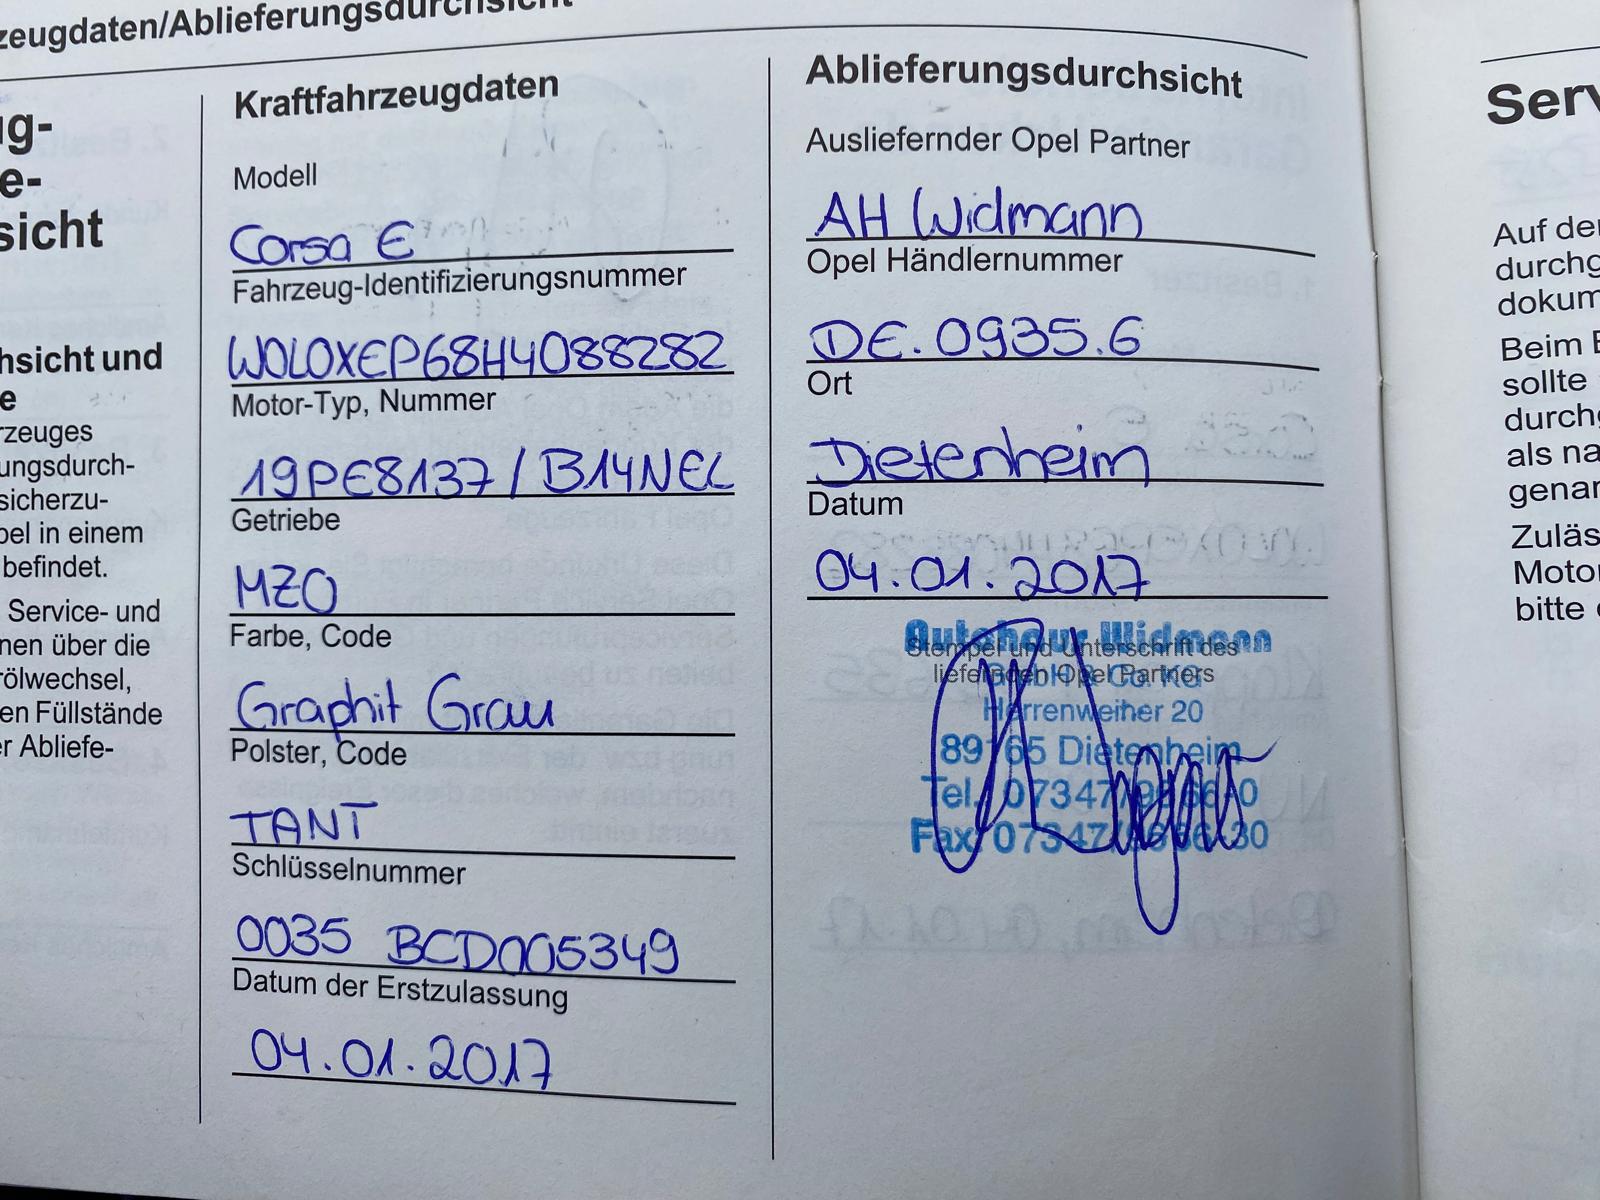 zeugdaten/Ablieferungsdurchsicht
ug-
e-
sicht
hsicht und
e
rzeuges
ungsdurch-
sicherzu-
pel in einem
befindet.
Service- und
nen über die
rölwechsel,
en Füllstände
er Abliefe-
Kraftfahrzeugdaten
Modell
Corsa E
Fahrzeug-Identifizierungsnummer
W0L0XEP68H4088282
Motor-Typ, Nummer
19PE8137 / B14NEL
Getriebe
MZ0
Farbe, Code
Graphit Grau
Polster, Code
TANT
Schlüsselnummer
0035 BCD005349
Datum der Erstzulassung
04.01.2017
Ablieferungsdurchsicht
Ausliefernder Opel Partner
AH Widmann
Opel Händlernummer
DE.0935.6
Ort
Dietenheim
Datum
04.01.2017
Autohaus Widmann
Stempel und Unterschrift des
liefernden Opel Partners
GmbH & Co. KG
Herrenweiher 20
89165 Dietenheim
Tel. 07347/9666-0
Fax 07347/9666-30
Serv
Auf der
durchg
dokum
Beim E
sollte
durchg
als na
genan
Zuläs
Motor
bitte